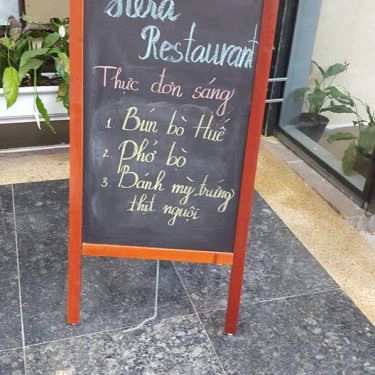 Restaurant
Thực đơn sáng
1. Bún bò Huế
2. Phở bò
3. Bánh mỳ, trứng
thịt nguội